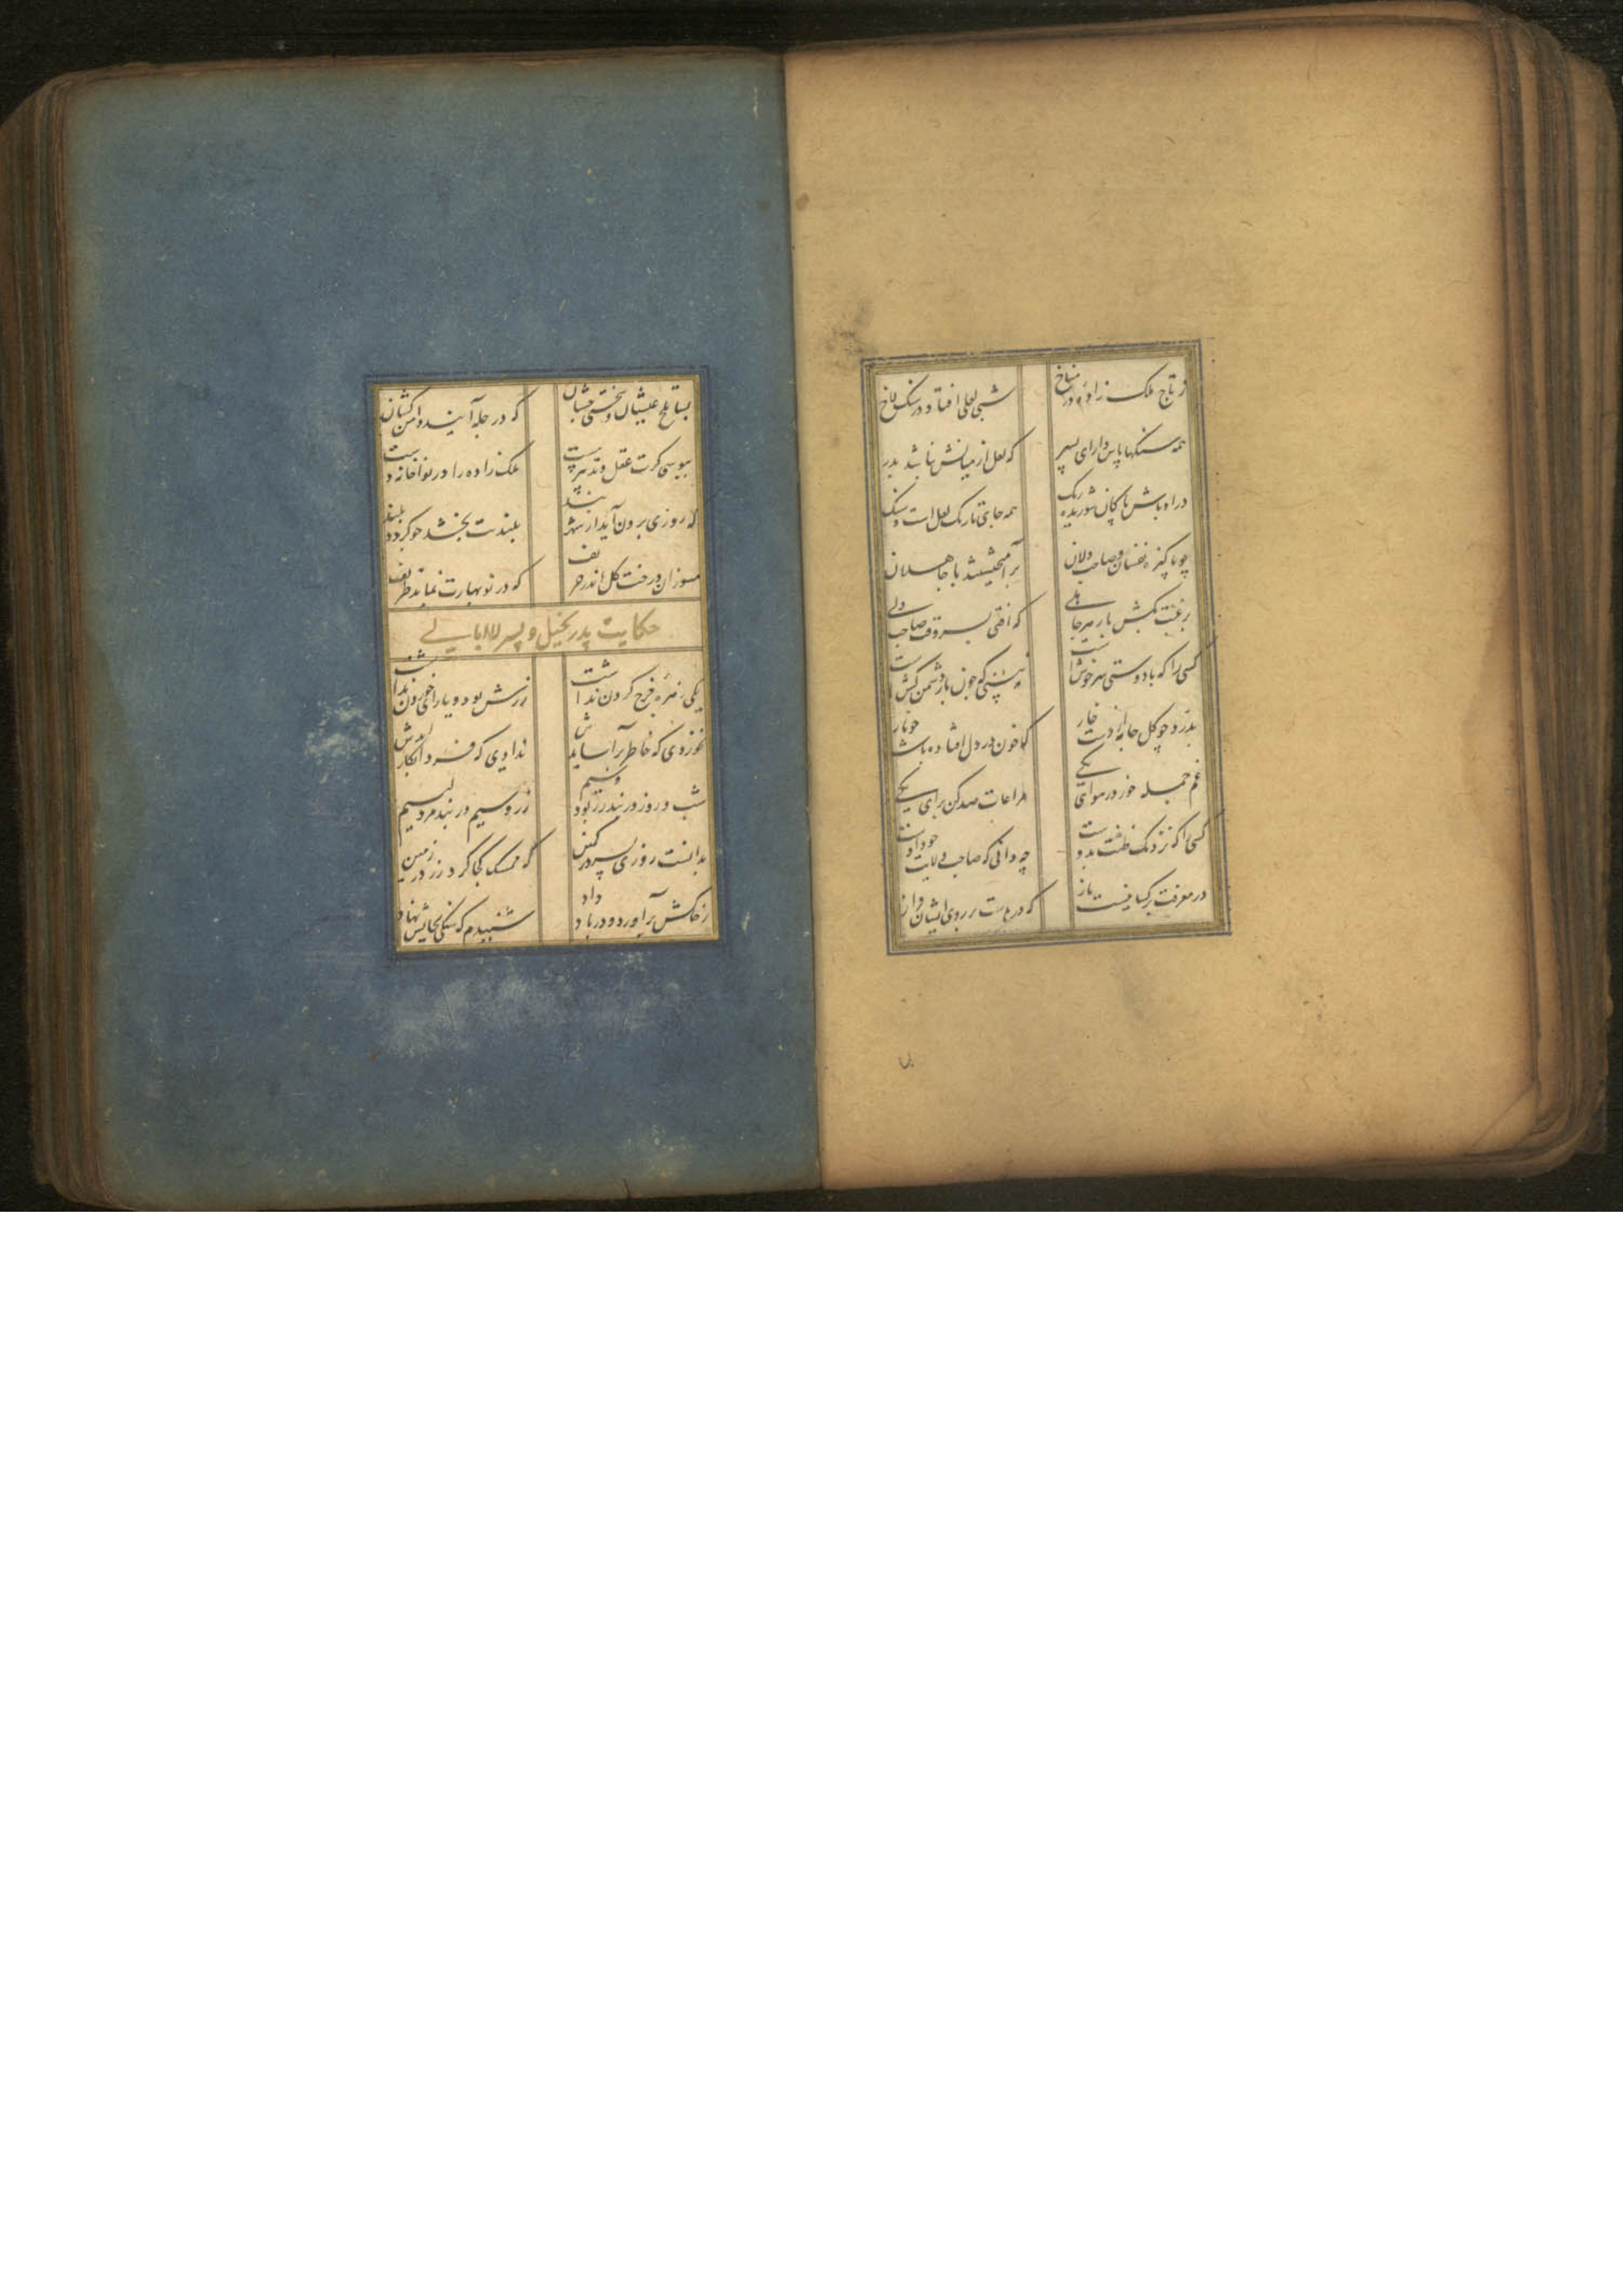 ز تاج ملک زادهٔ در مناخ
شبی لعلی افتاد در سنگ لاخ
همه سنگها پاس دار ای پسر
که لعل از میانش نباشد بدر
در اوباش پاکان شوریده رنگ
همه جای تاریک لعل است و سنگ
چو پاکیزه نفسان و صاحب دلان
برآمیخستند با جاهلان
برغبت بکش بار هر جاهلی
که افتی بسر وقت صاحب دلی
کسی را که با دوستی سرخوشست
نه بینی که چون بار دشمن کشست
بدرد چو گل جامه از دست خار
که خون در دل افتاده باشد چو نار
غم جمله خور در هوای یکی
مراعات صد کن برای یکی
کسی را که نزدیک ظنت بد اوست
چه دانی که صاحب ولایت خود اوست
در معرفت بر کسانیست باز
که درهاست بر روی ایشان فراز
بسا تلخ عیشان و سختی چشان
که در حله آیند دامن کشان
ببوسی گرت عقل و تدبیر هست
ملک زاده را در نواخانه دست
که روزی برون آید از شهر بند
بلندیت بخشد چو گردد بلند
مسوزان درخت گل اندر خریف
که در نوبهارت نماید ظریف
حکایت پدر بخیل و پسر لاابالی
یکی زهرهٔ خرج کردن نداشت
زرش بود و یارای خوردن نداشت
نخوردی که خاطر برآسایدش
ندادی که فردا بکار آیدش
شب و روز در بند زر بود و سیم
زر و سیم در بند مرد لئیم
بدانست روزی پسر در کمین
که ممسک کجا کرد زر در زمین
ز خاکش برآورد و در باد داد
شنیدم که سنگی بجایش نهاد